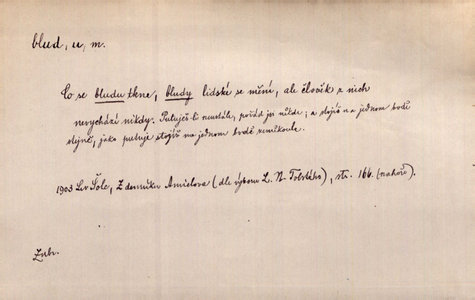 blud, u, m.
Co se bludu tkne, bludy lidské se mění, ale člověk z nich
nevychází nikdy. Putuješ-li neustále, pořád jsi někde; a stojíš na jednom bodě
stejně, jako putuje stojíš na jednom bodě zeměkoule.
1903 Lev Šole, Z denníku Amielova (dle výboru L. N. Tolstého), str. 166. (nahoře).
Zubr.